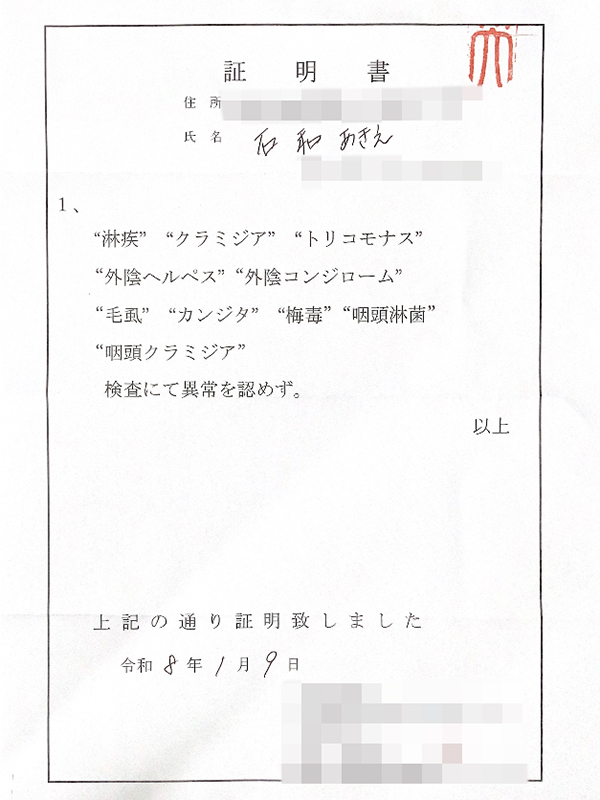 証明書
住所
氏名 石和あきえ
1、
“淋疾” “クラミジア” “トリコモナス”
“外陰ヘルペス” “外陰コンジローム”
“毛虱” “カンジタ” “梅毒” “咽頭淋菌”
“咽頭クラミジア”
検査にて異常を認めず。
以上
上記の通り証明致しました
令和8年1月9日